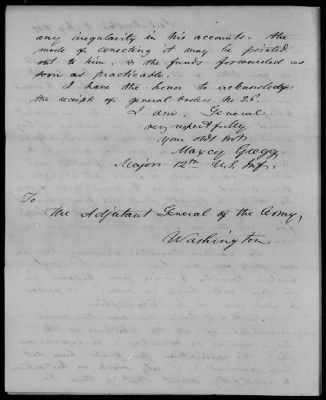 any irregularity in his accounts, the
mode of correcting it may be pointed
out to him, & the funds forwarded as
soon as practicable.
I have the honor to acknowledge
the receipt of general orders No 26.
I am, General
very respectfully
your obdt Servt
Maxcy Gregg
Major 12th U.S. Inf.
To
The Adjutant General of the Army,
Washington